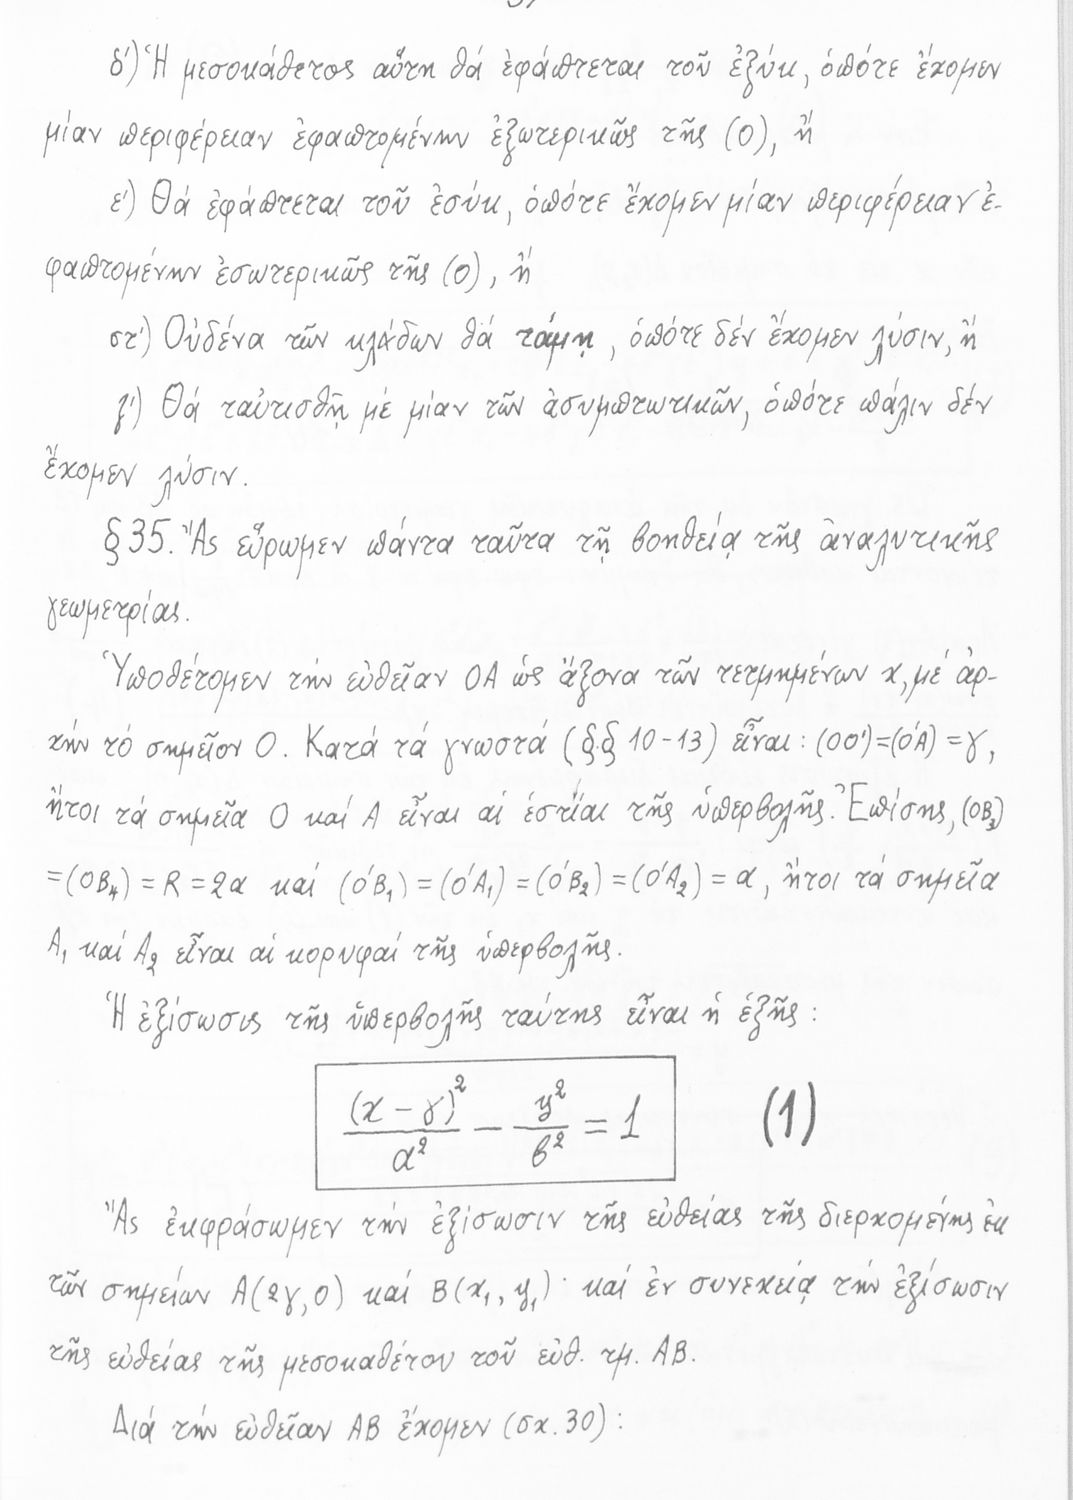 δ') Ἡ μεσοκάθετος αὕτη θά ἐφάπτεται τοῦ ἐξύκ, ὁπότε ἔχομεν
μίαν περιφέρειαν ἐφαπτομένην ἐξωτερικῶς τῆς (O), ἤ
ε') Θά ἐφάπτεται τοῦ ἐσύκ, ὁπότε ἔχομεν μίαν περιφέρειαν ἐ-
φαπτομένην ἐσωτερικῶς τῆς (O), ἤ
στ') Οὐδένα τῶν κλάδων θά τάμῃ, ὁπότε δέν ἔχομεν λύσιν, ἤ
ζ') Θά ταὐτισθῇ μέ μίαν τῶν ἀσυμπτωτικῶν, ὁπότε πάλιν δέν
ἔχομεν λύσιν.
§ 35. Ἄς εὕρωμεν πάντα ταῦτα τῇ βοηθείᾳ τῆς ἀναλυτικῆς
γεωμετρίας.
Ὑποθέτομεν τήν εὐθεῖαν OA ὡς ἄξονα τῶν τετμημένων x, μέ ἀρ-
χήν τό σημεῖον O. Κατά τά γνωστά (§.§ 10-13) εἶναι: (OO')=(O'A)=γ,
ἤτοι τά σημεῖα O καί A εἶναι αἱ ἑστίαι τῆς ὑπερβολῆς. Ἐπίσης, (OB₃)
=(OB₄) = R = 2α καί (O'B₁) = (O'A₁) = (O'B₂) = (O'A₂) = α, ἤτοι τά σημεῖα
A₁ καί A₂ εἶναι αἱ κορυφαί τῆς ὑπερβολῆς.
Ἡ ἐξίσωσις τῆς ὑπερβολῆς ταύτης εἶναι ἡ ἑξῆς:
(x - γ)²/α² - y²/β² = 1 (1)
Ἄς ἐκφράσωμεν τήν ἐξίσωσιν τῆς εὐθείας τῆς διερχομένης ἐκ
τῶν σημείων A(2γ, 0) καί B(x₁, y₁)· καί ἐν συνεχείᾳ τήν ἐξίσωσιν
τῆς εὐθείας τῆς μεσοκαθέτου τοῦ εὐθ. τμ. AB.
Διά τήν εὐθεῖαν AB ἔχομεν (σχ. 30):